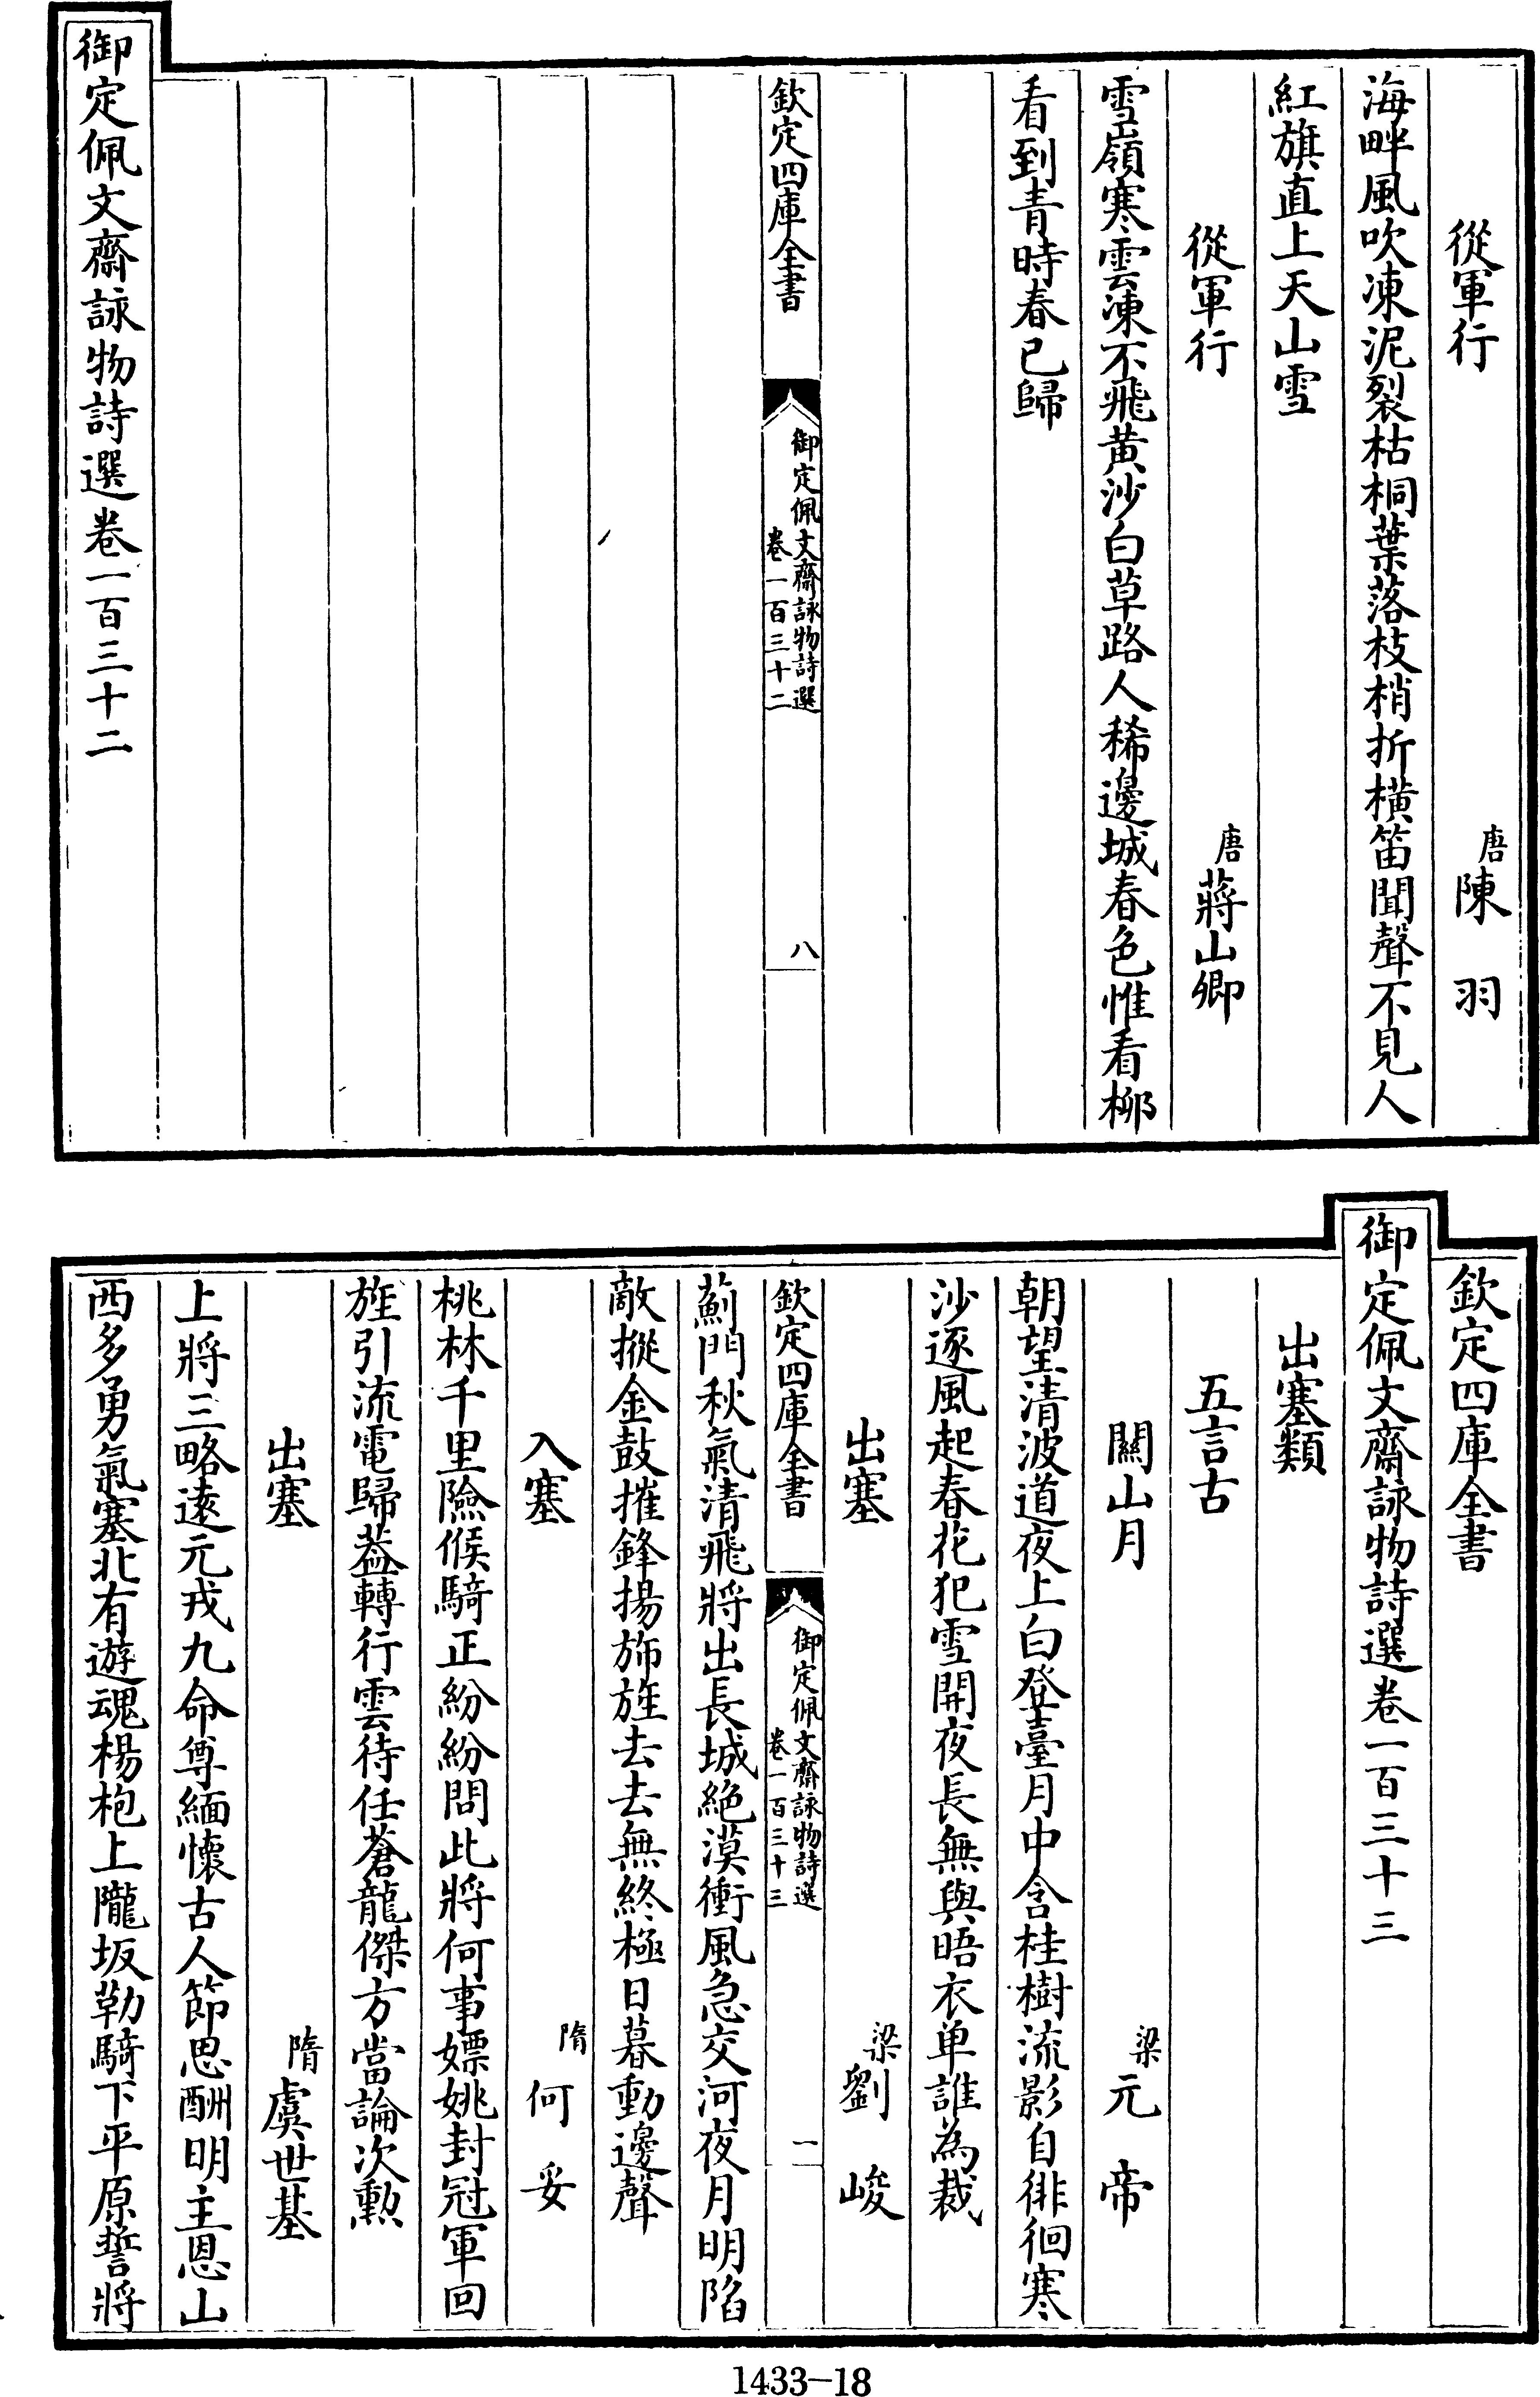 從軍行 唐 陳羽
海畔風吹凍泥裂枯桐葉落枝梢折橫笛聞聲不見人
紅旗直上天山雪
從軍行 唐 蔣山卿
雪嶺寒雲凍不飛黄沙白草路人稀邊城春色惟看柳
看到青時春已歸
欽定四庫全書 御定佩文齋詠物詩選 卷一百三十二 八
御定佩文齋詠物詩選卷一百三十二
欽定四庫全書
御定佩文齋詠物詩選卷一百三十三
出塞類
五言古
關山月 梁 元帝
朝望清波道夜上白登臺月中含桂樹流影自徘徊寒
沙逐風起春花犯雪開夜長無與晤衣単誰為裁
出塞 梁 劉峻
欽定四庫全書 御定佩文齋詠物詩選 卷一百三十三 一
薊門秋氣清飛將出長城絶漠衝風急交河夜月明陷
敵摐金鼓摧鋒揚斾旌去去無終極日暮動邊聲
入塞 隋 何妥
桃林千里險候騎正紛紛問此將何事嫖姚封冠軍回
旌引流電歸葢轉行雲待任蒼龍傑方當論次勲
出塞 隋 虞世基
上將三略逺元戎九命尊緬懷古人節思酬明主恩山
西多勇氣塞北有遊魂楊枹上隴坂勒騎下平原誓將
1433-18